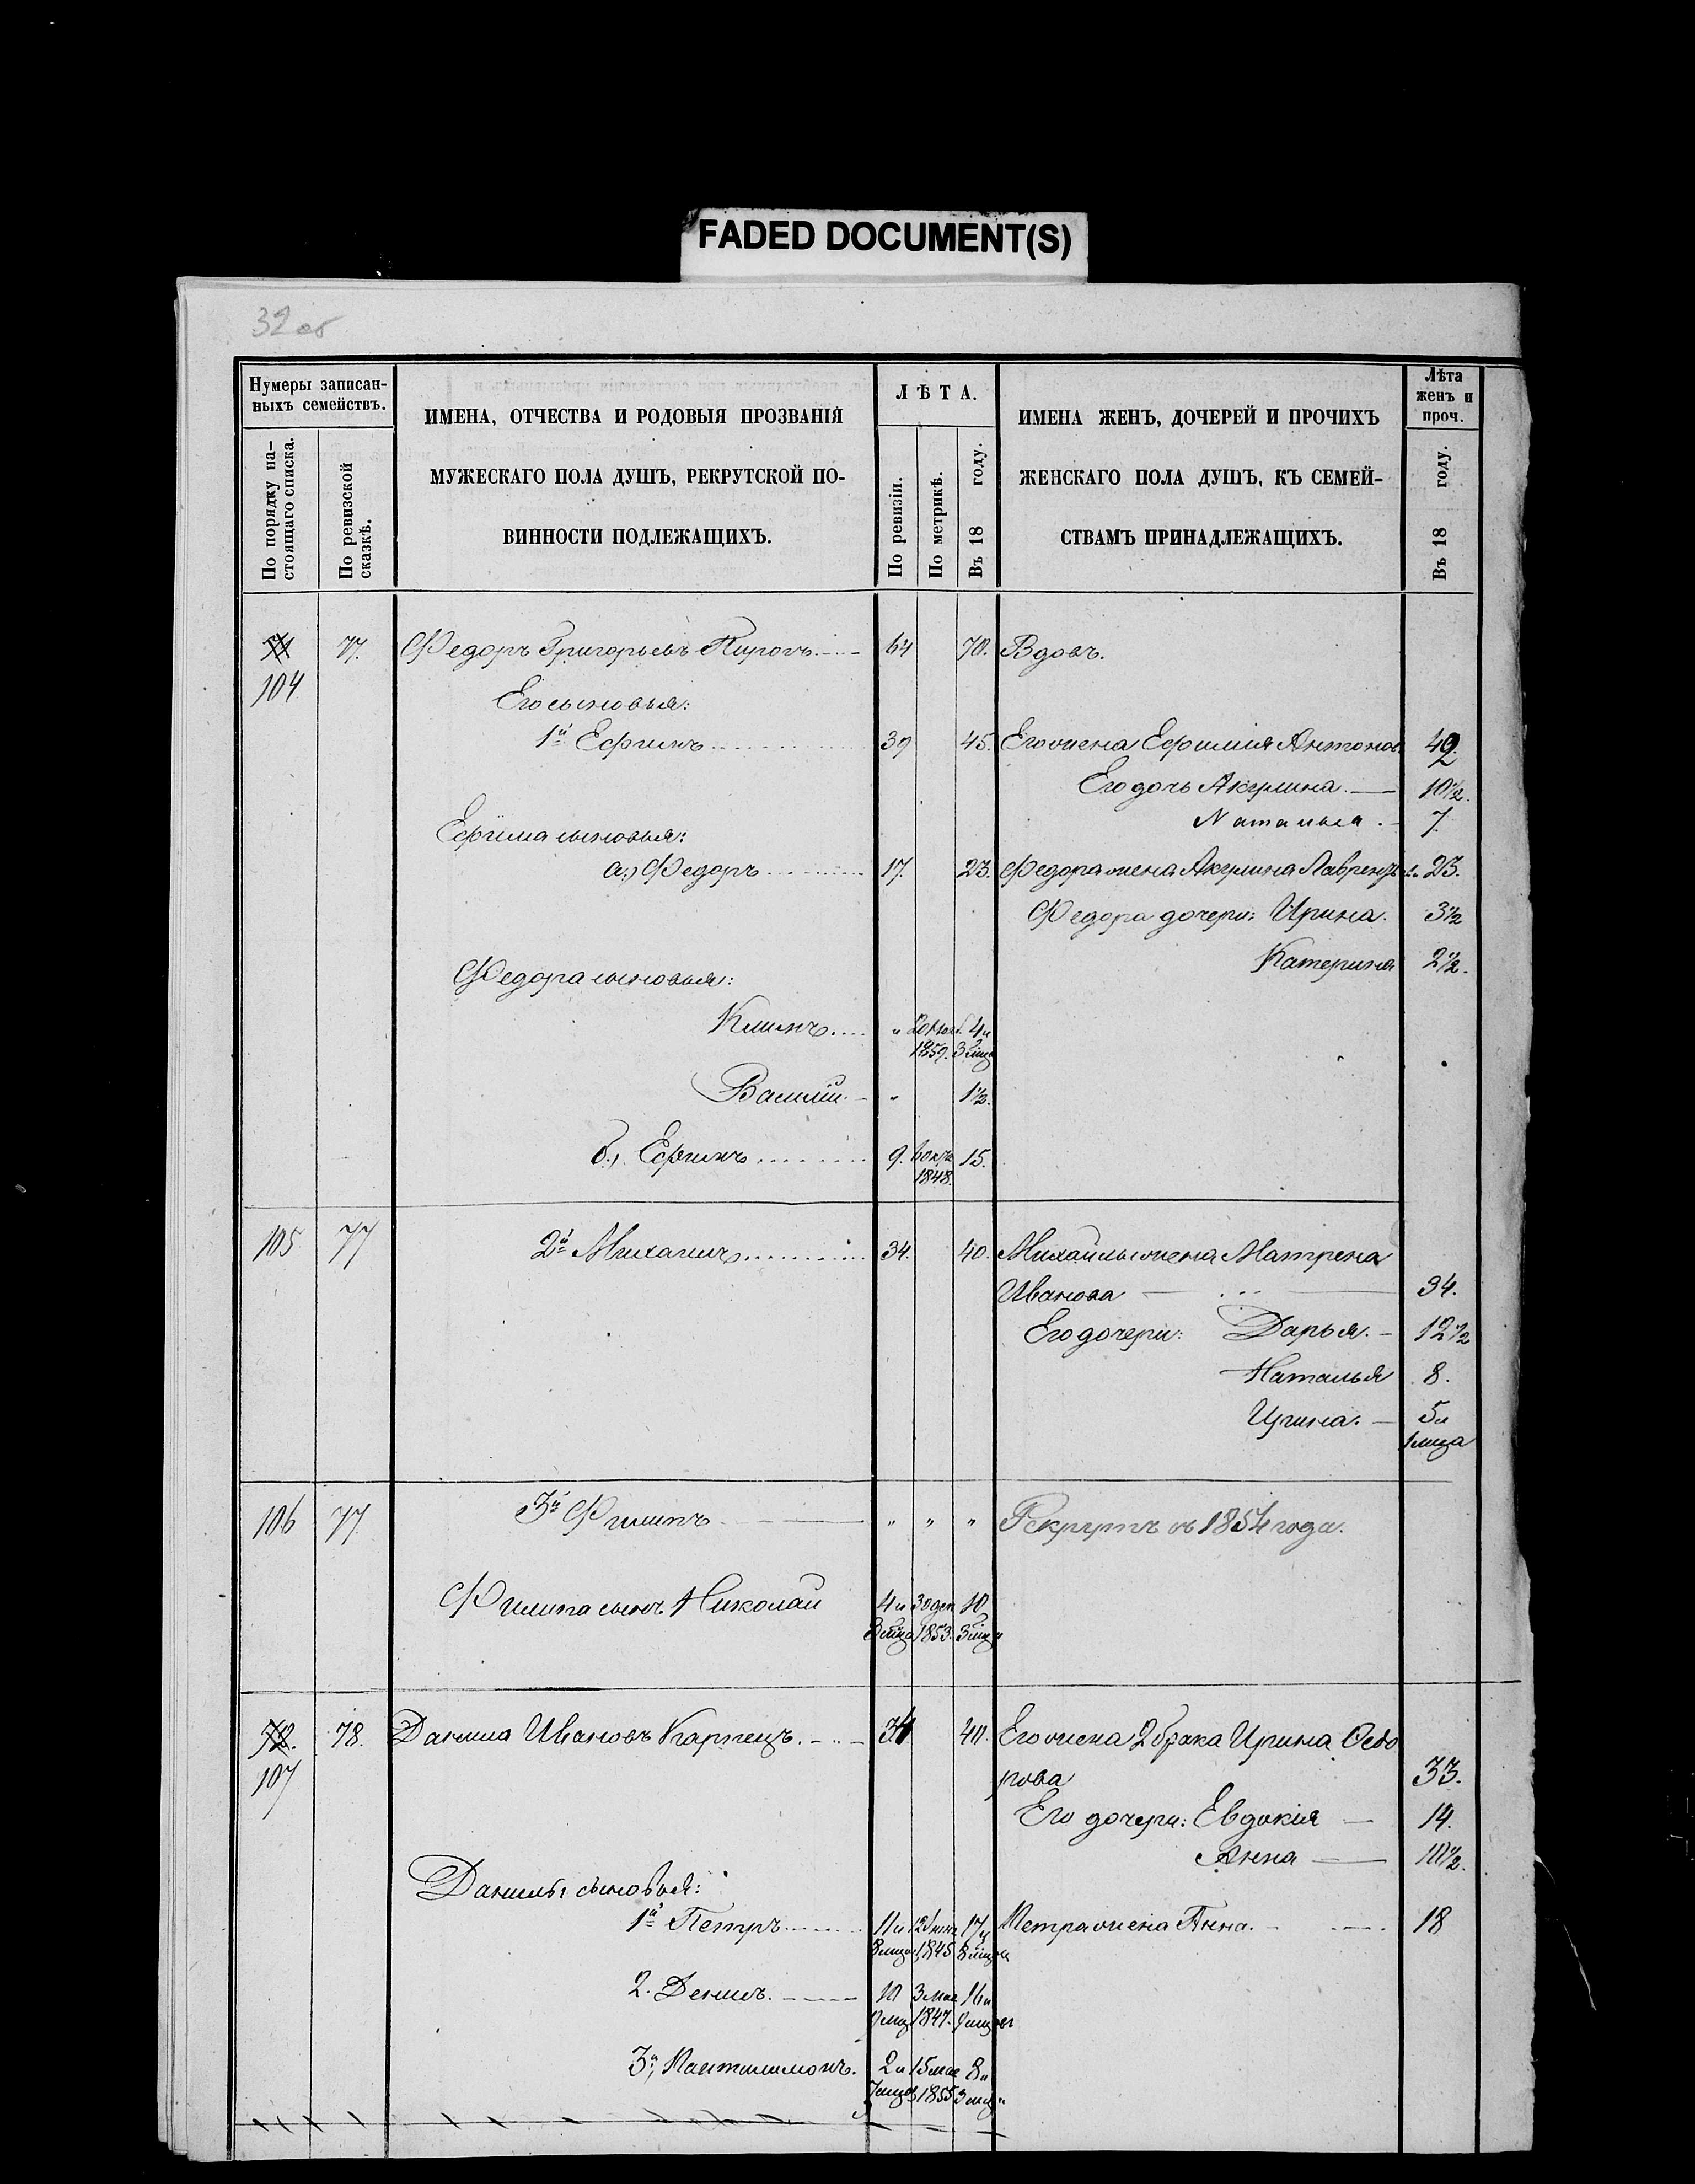 FADED DOCUMENT(S)
32 об
Нумеры записан-
ныхъ семействъ.
По порядку на-
стоящаго списка.
По ревизской
сказкѣ.
ИМЕНА, ОТЧЕСТВА И РОДОВЫЯ ПРОЗВАНІЯ
МУЖЕСКАГО ПОЛА ДУШЪ, РЕКРУТСКОЙ ПО-
ВИННОСТИ ПОДЛЕЖАЩИХЪ.
ЛѢТА.
По ревизіи.
По метрикѣ.
Въ 18 году.
ИМЕНА ЖЕНЪ, ДОЧЕРЕЙ И ПРОЧИХЪ
ЖЕНСКАГО ПОЛА ДУШЪ, КЪ СЕМЕЙ-
СТВАМЪ ПРИНАДЛЕЖАЩИХЪ.
Лѣта
женъ и
проч.
Въ 18 году.
77. Федоръ Григорьевъ Пирогъ. 64 70. Вдовъ.
104
Его сыновья:
1й Ефимъ 39 45. Его жена Ефимія Антонов 42
Его дочь Акулина. 10½.
Наталья. 7.
Ефима сыновья:
а., Федоръ 17. 23. Федора жена Акулина Лавренть 23.
Федора дочери: Ирина. 3½
Катерина 2½.
Федора сыновья:
Климъ " 1859. 4и
3 мца
Василій " 1½.
б., Ефимъ 9. 1848. 15.
105 77 2й Михаилъ 34. 40. Михайлы жена Матрена
Иванова 34.
Его дочери: Дарья. 12½
Наталья 8.
Ирина. 5и
1 мца
106 77 3й Филипъ " " " Рекрутъ съ 1854 года.
Филипа сынъ Николай 4и 30 дек 10
1853. 3 мца
72. 78. Данила Ивановъ Карпецъ. 34 40. Его жена 2 брака Ирина Федо
рова 33.
107
Его дочери: Евдокія 14.
Анна 10½.
Данилы сыновья:
1й Петръ 11и 12 1845 17и Петра жена Анна. 18
8 мца 8 мца
2. Денисъ. 10 3 мая 16и
1847.
3й, Пантилимонъ. 2и 15 мая 8и
7 мца 1855 3 мца